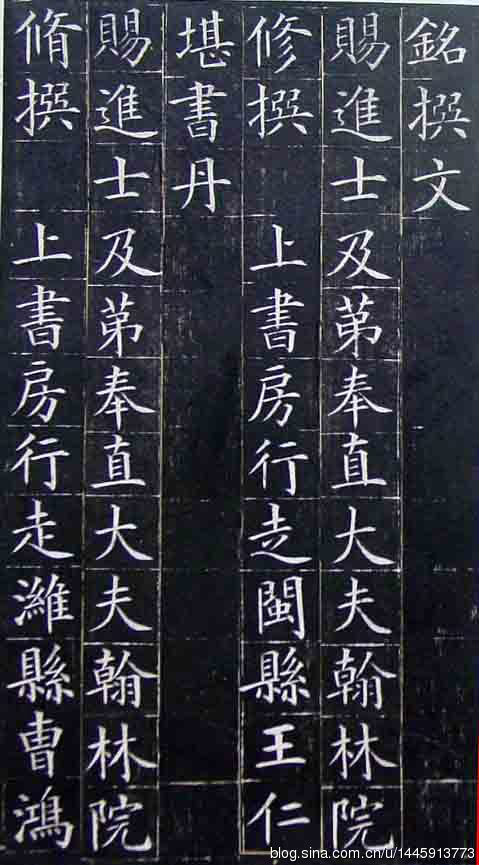 銘撰文
賜進士及第奉直大夫翰林院
修撰上書房行走閩縣王仁
堪書丹
賜進士及第奉直大夫翰林院
脩撰上書房行走濰縣曹鴻
blog.sina.com.cn/u/1445913773